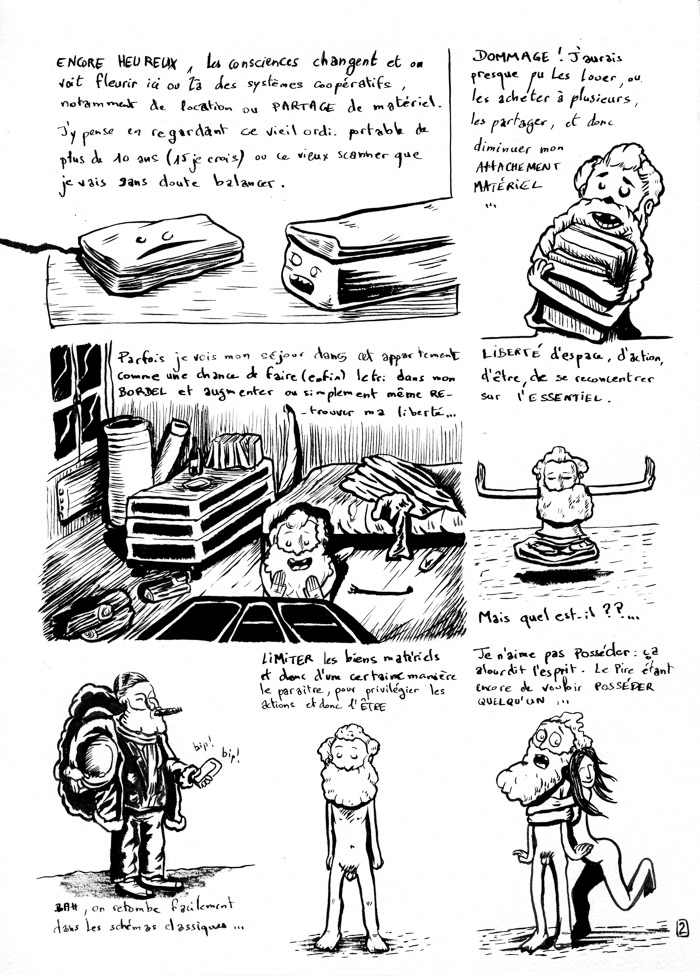 ENCORE HEUREUX, les consciences changent et on
voit fleurir ici ou là des systèmes coopératifs,
notamment de location ou PARTAGE de matériel.
J'y pense en regardant ce vieil ordi. portable de
plus de 10 ans (15 je crois) ou ce vieux scanner que
je vais sans doute balancer.
DOMMAGE ! J'aurais
presque pu les louer, ou
les acheter à plusieurs,
les partager, et donc
diminuer mon
ATTACHEMENT
MATÉRIEL
...
Parfois je vois mon séjour dans cet appartement
comme une chance de faire (enfin) le tri dans mon
BORDEL et augmenter ou simplement même RE-
-trouver ma liberté...
LIBERTÉ d'espace, d'action,
d'être, de se reconcentrer
sur l'ESSENTIEL.
Mais quel est-il ??...
bip!
bip!
BAH, on retombe facilement
dans les schémas classiques...
LIMITER les biens matériels
et donc d'une certaine manière
le paraître, pour privilégier les
actions et donc l'ÊTRE
Je n'aime pas Posséder : ça
alourdit l'esprit. Le Pire étant
encore de vouloir POSSÉDER
QUELQU'UN ...
2